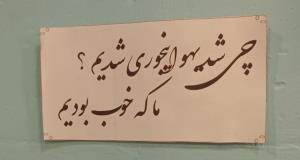 چی شد یهو اینجوری شدیم ؟
ما که خوب بودیم